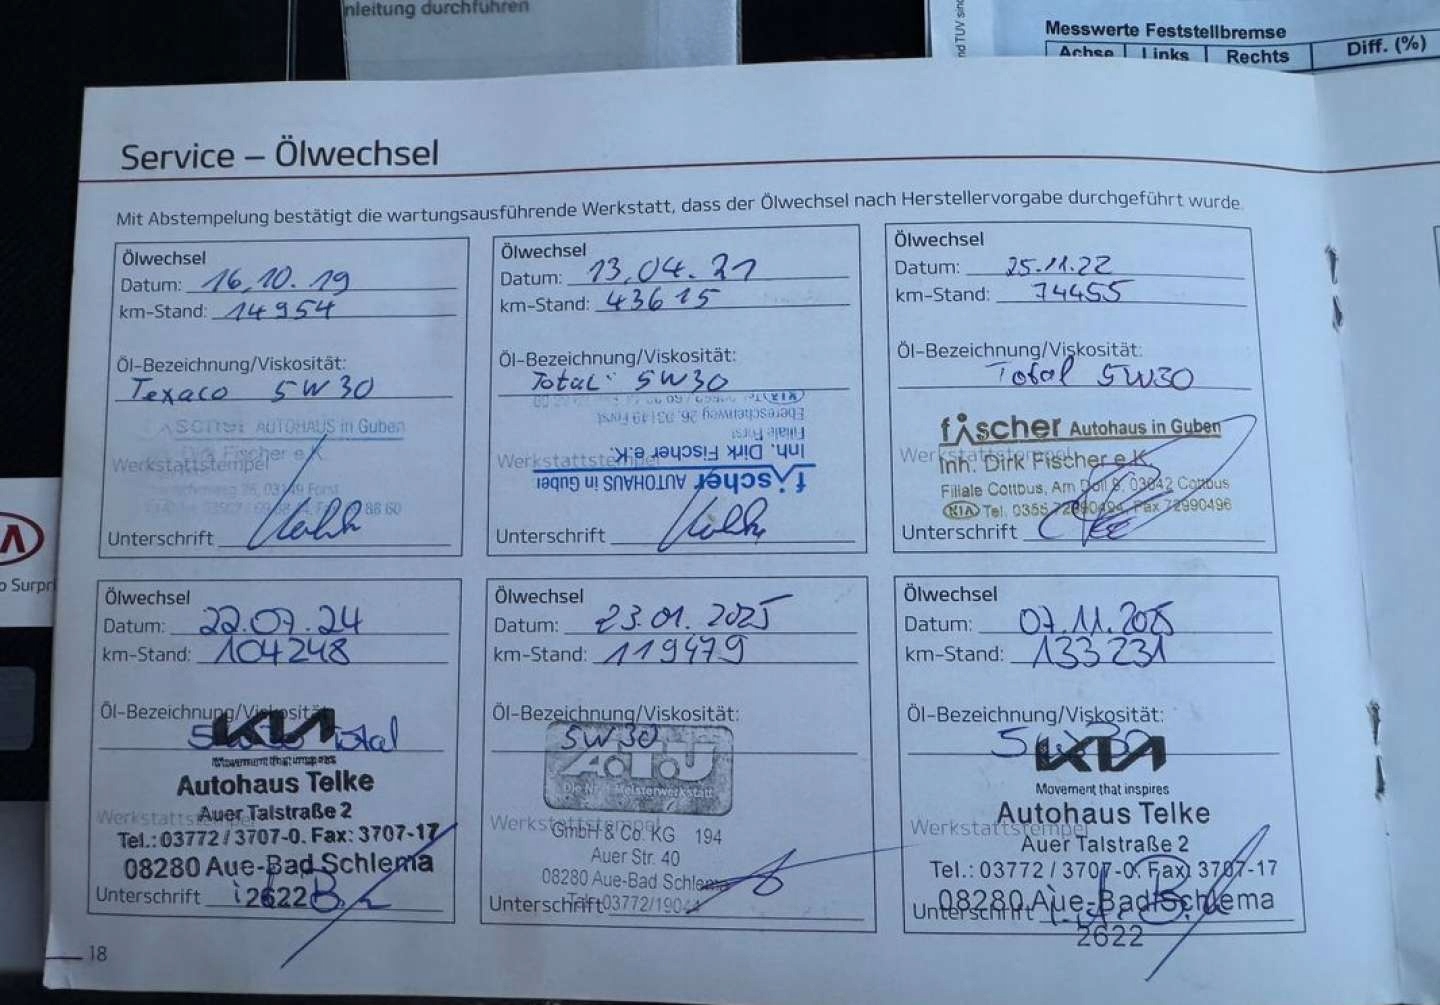 nleitung durchführen
nd TÜV sind
Messwerte Feststellbremse
Achse Links Rechts Diff. (%)
Service – Ölwechsel
Mit Abstempelung bestätigt die wartungsausführende Werkstatt, dass der Ölwechsel nach Herstellervorgabe durchgeführt wurde.
Ölwechsel
Datum: 16.10.19
km-Stand: 14954
Öl-Bezeichnung/Viskosität:
Texaco 5W30
AUTOHAUS in Guben
Dirk Fischer e.K.
Werkstattstempel
26, 03149 Forst
Unterschrift
Ölwechsel
Datum: 13.04.21
km-Stand: 43615
Öl-Bezeichnung/Viskosität:
Total 5W30
KIA
Ebereschenweg 26, 03149 Forst
Filiale Forst
Werkstattstempel
Inh. Dirk Fischer e.K.
fischer AUTOHAUS in Guben
Unterschrift
Ölwechsel
Datum: 25.11.22
km-Stand: 74455
Öl-Bezeichnung/Viskosität:
Total 5W30
fischer Autohaus in Guben
Werkstattstempel
Inh. Dirk Fischer e.K.
Filiale Cottbus, Am Doll 9, 03042 Cottbus
KIA Tel. 0355 72990494, Fax 72990496
Unterschrift
Ölwechsel
Datum: 22.07.24
km-Stand: 104248
Öl-Bezeichnung/Viskosität:
Total
KIA
Movement that inspires
Autohaus Telke
Auer Talstraße 2
Werkstattstempel
Tel.: 03772 / 3707-0. Fax: 3707-17
08280 Aue-Bad Schlema
Unterschrift
2622
Ölwechsel
Datum: 23.01.2025
km-Stand: 119479
Öl-Bezeichnung/Viskosität:
5W30
A.T.U
Die Nr. 1 Meisterwerkstatt
Werkstattstempel
GmbH & Co. KG 194
Auer Str. 40
08280 Aue-Bad Schlema
Unterschrift
Tel. 03772/19044
Ölwechsel
Datum: 07.11.2025
km-Stand: 133231
Öl-Bezeichnung/Viskosität:
5W30
KIA
Movement that inspires
Autohaus Telke
Werkstattstempel
Auer Talstraße 2
Tel.: 03772 / 3707-0. Fax: 3707-17
08280 Aue-Bad Schlema
Unterschrift
2622
18
o Surpri